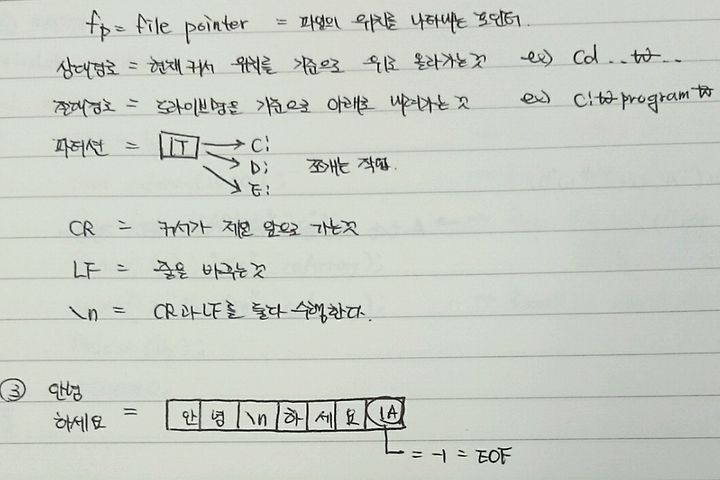 fp = file pointer = 파일의 위치를 나타내는 포인터.
상대경로 = 현재 커서 위치를 기준으로 위로 올라가는 것 ex) cd ..₩..
절대경로 = 드라이브명을 기준으로 아래로 내려가는 것 ex) C:₩program₩
파티션 = 1T → C:
D: 쪼개는 작업.
E:
CR = 커서가 제일 앞으로 가는것
LF = 줄을 바꾸는것
\n = CR과 LF를 둘다 수행한다.
③ 안녕
하세요 = 안 녕 \n 하 세 요 1A
= -1 = EOF